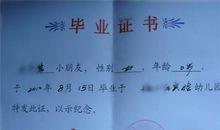 毕业证书
小朋友，性别 女，年龄 6岁，
于 2010年 8月15日毕业于 实验幼儿园
特发此证，以示纪念。